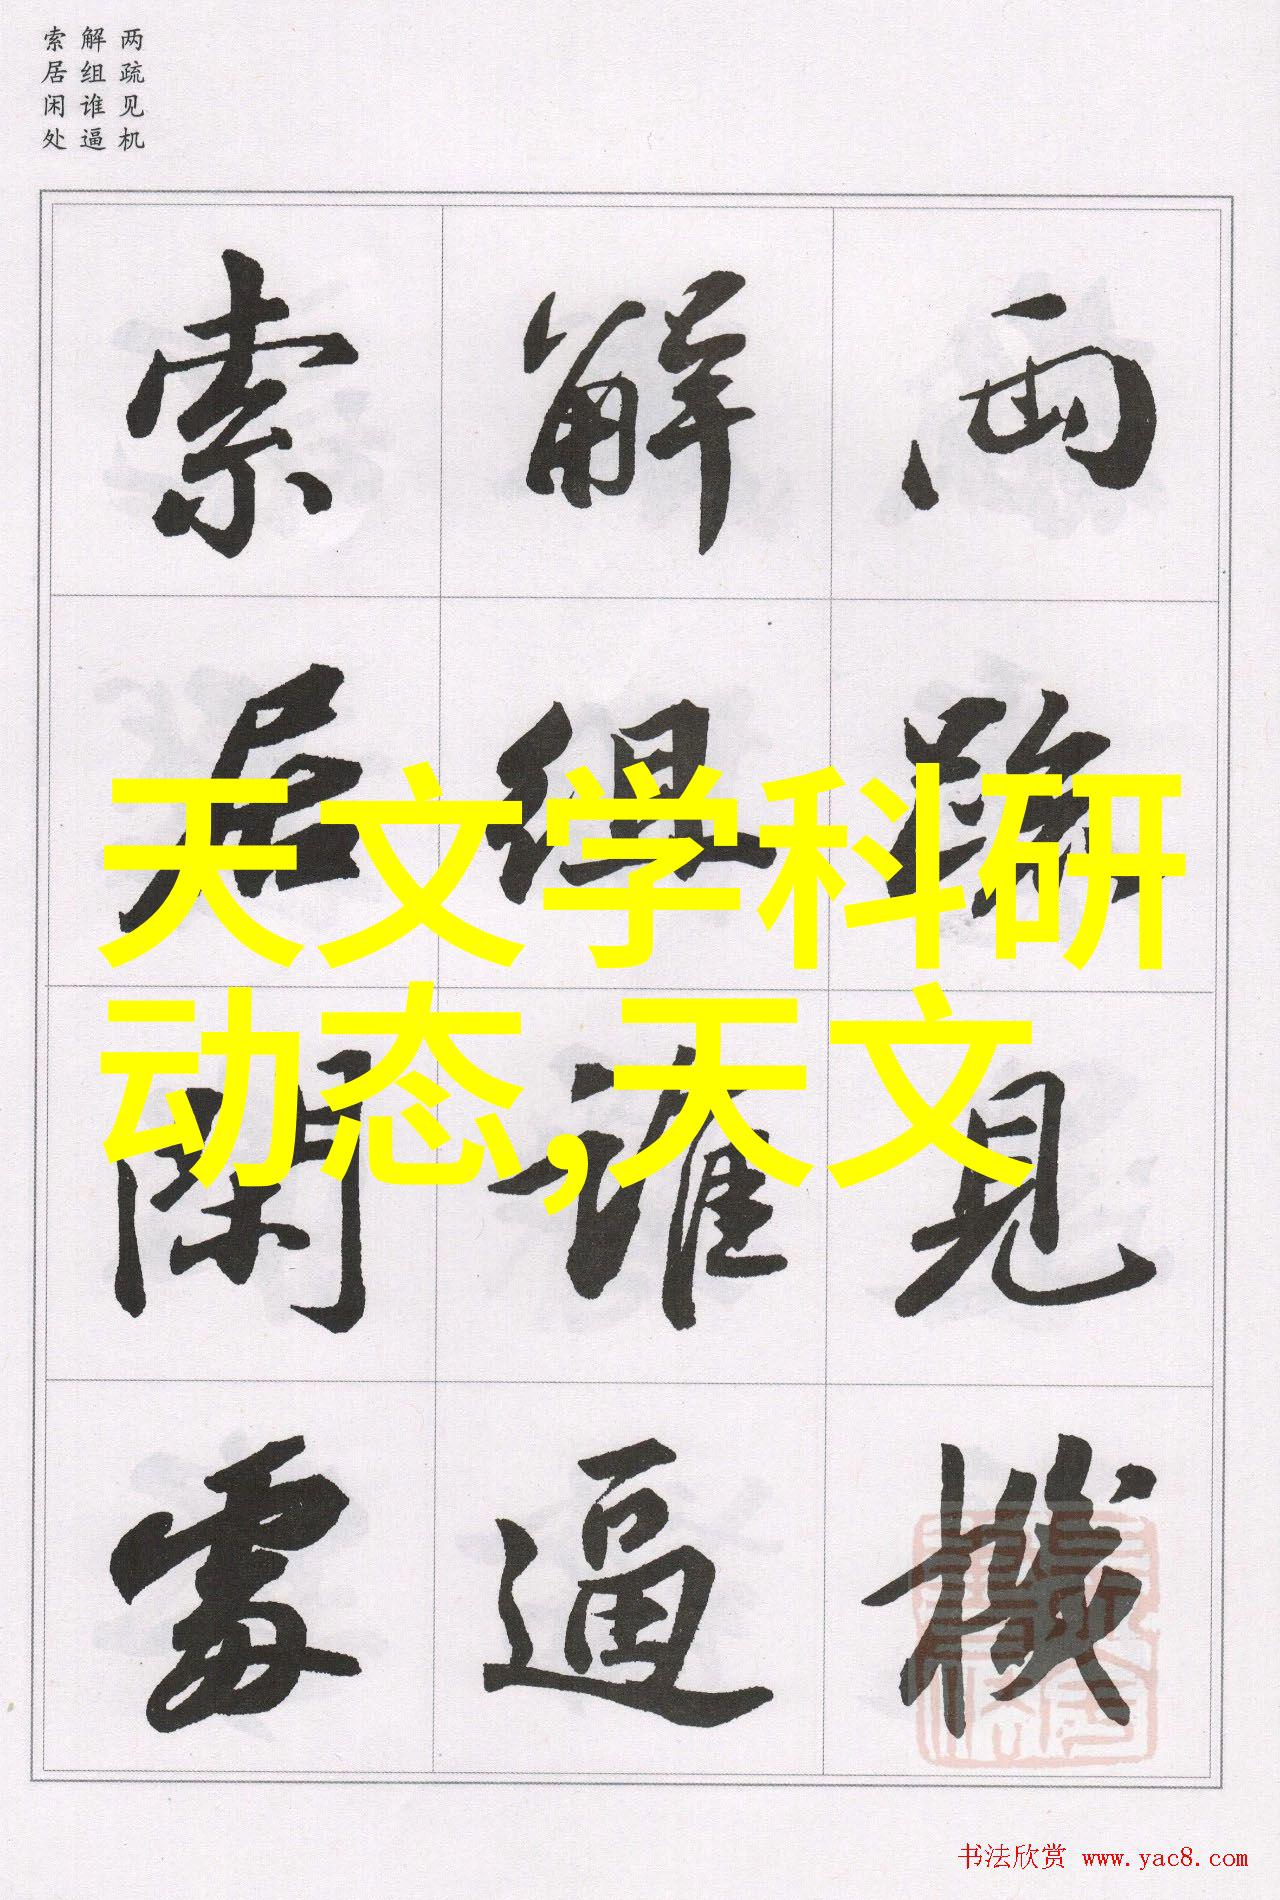 两疏见机
解组谁逼
索居闲处
两疏見機
解组誰逼
索居閑處
天文学科研
动态,天文
书法欣赏 www.yac8.com